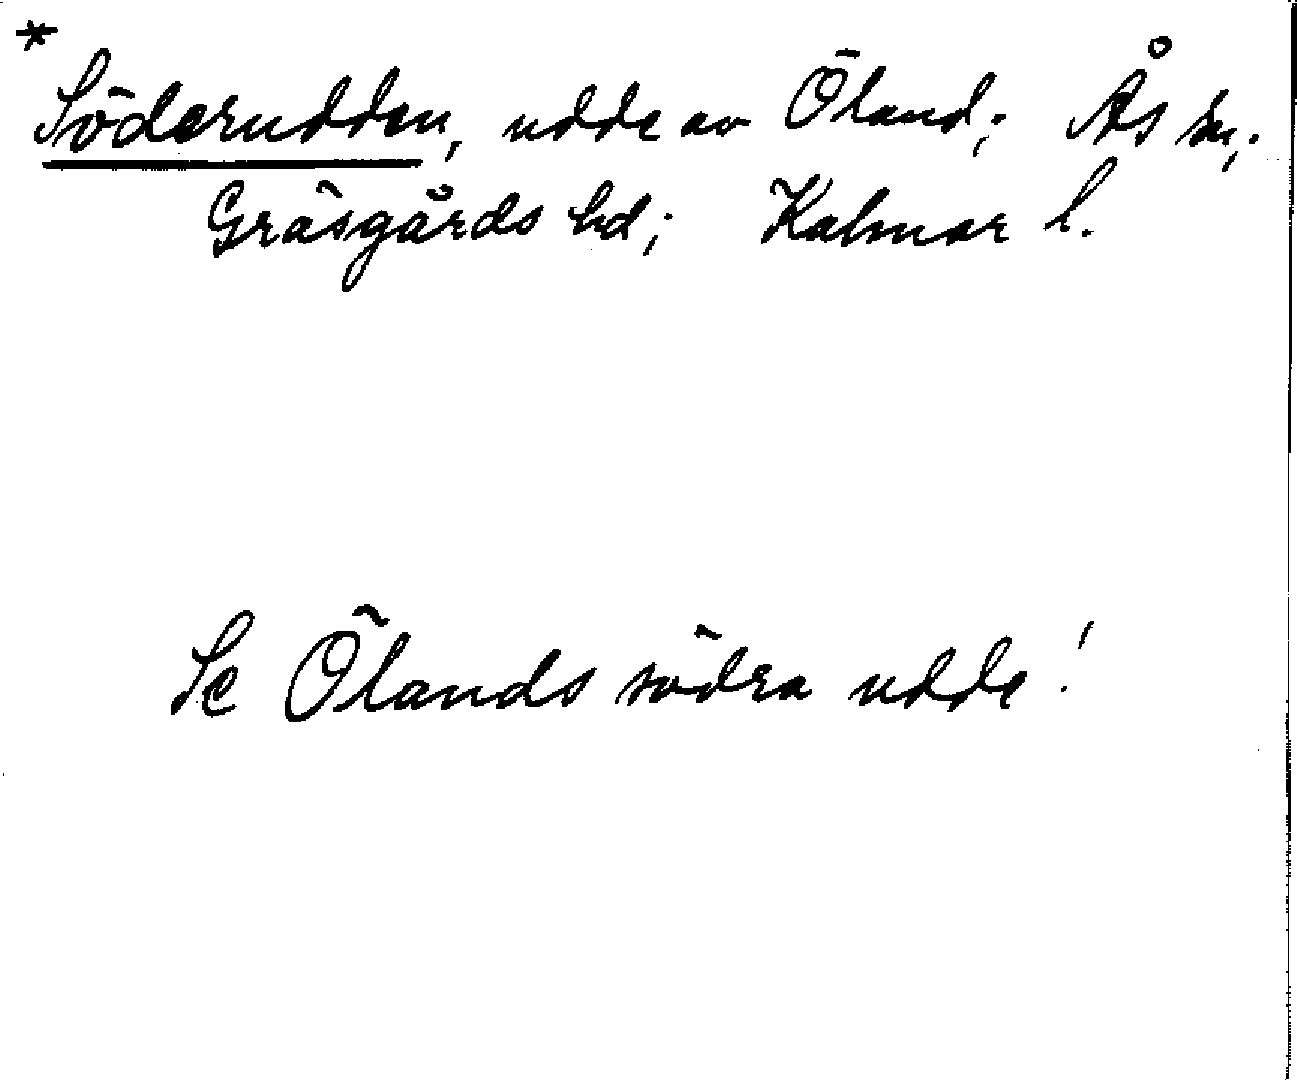 * Söderudden, udde av Öland; Ås sn;
Gräsgårds hd; Kalmar l.
Se Ölands södra udde!